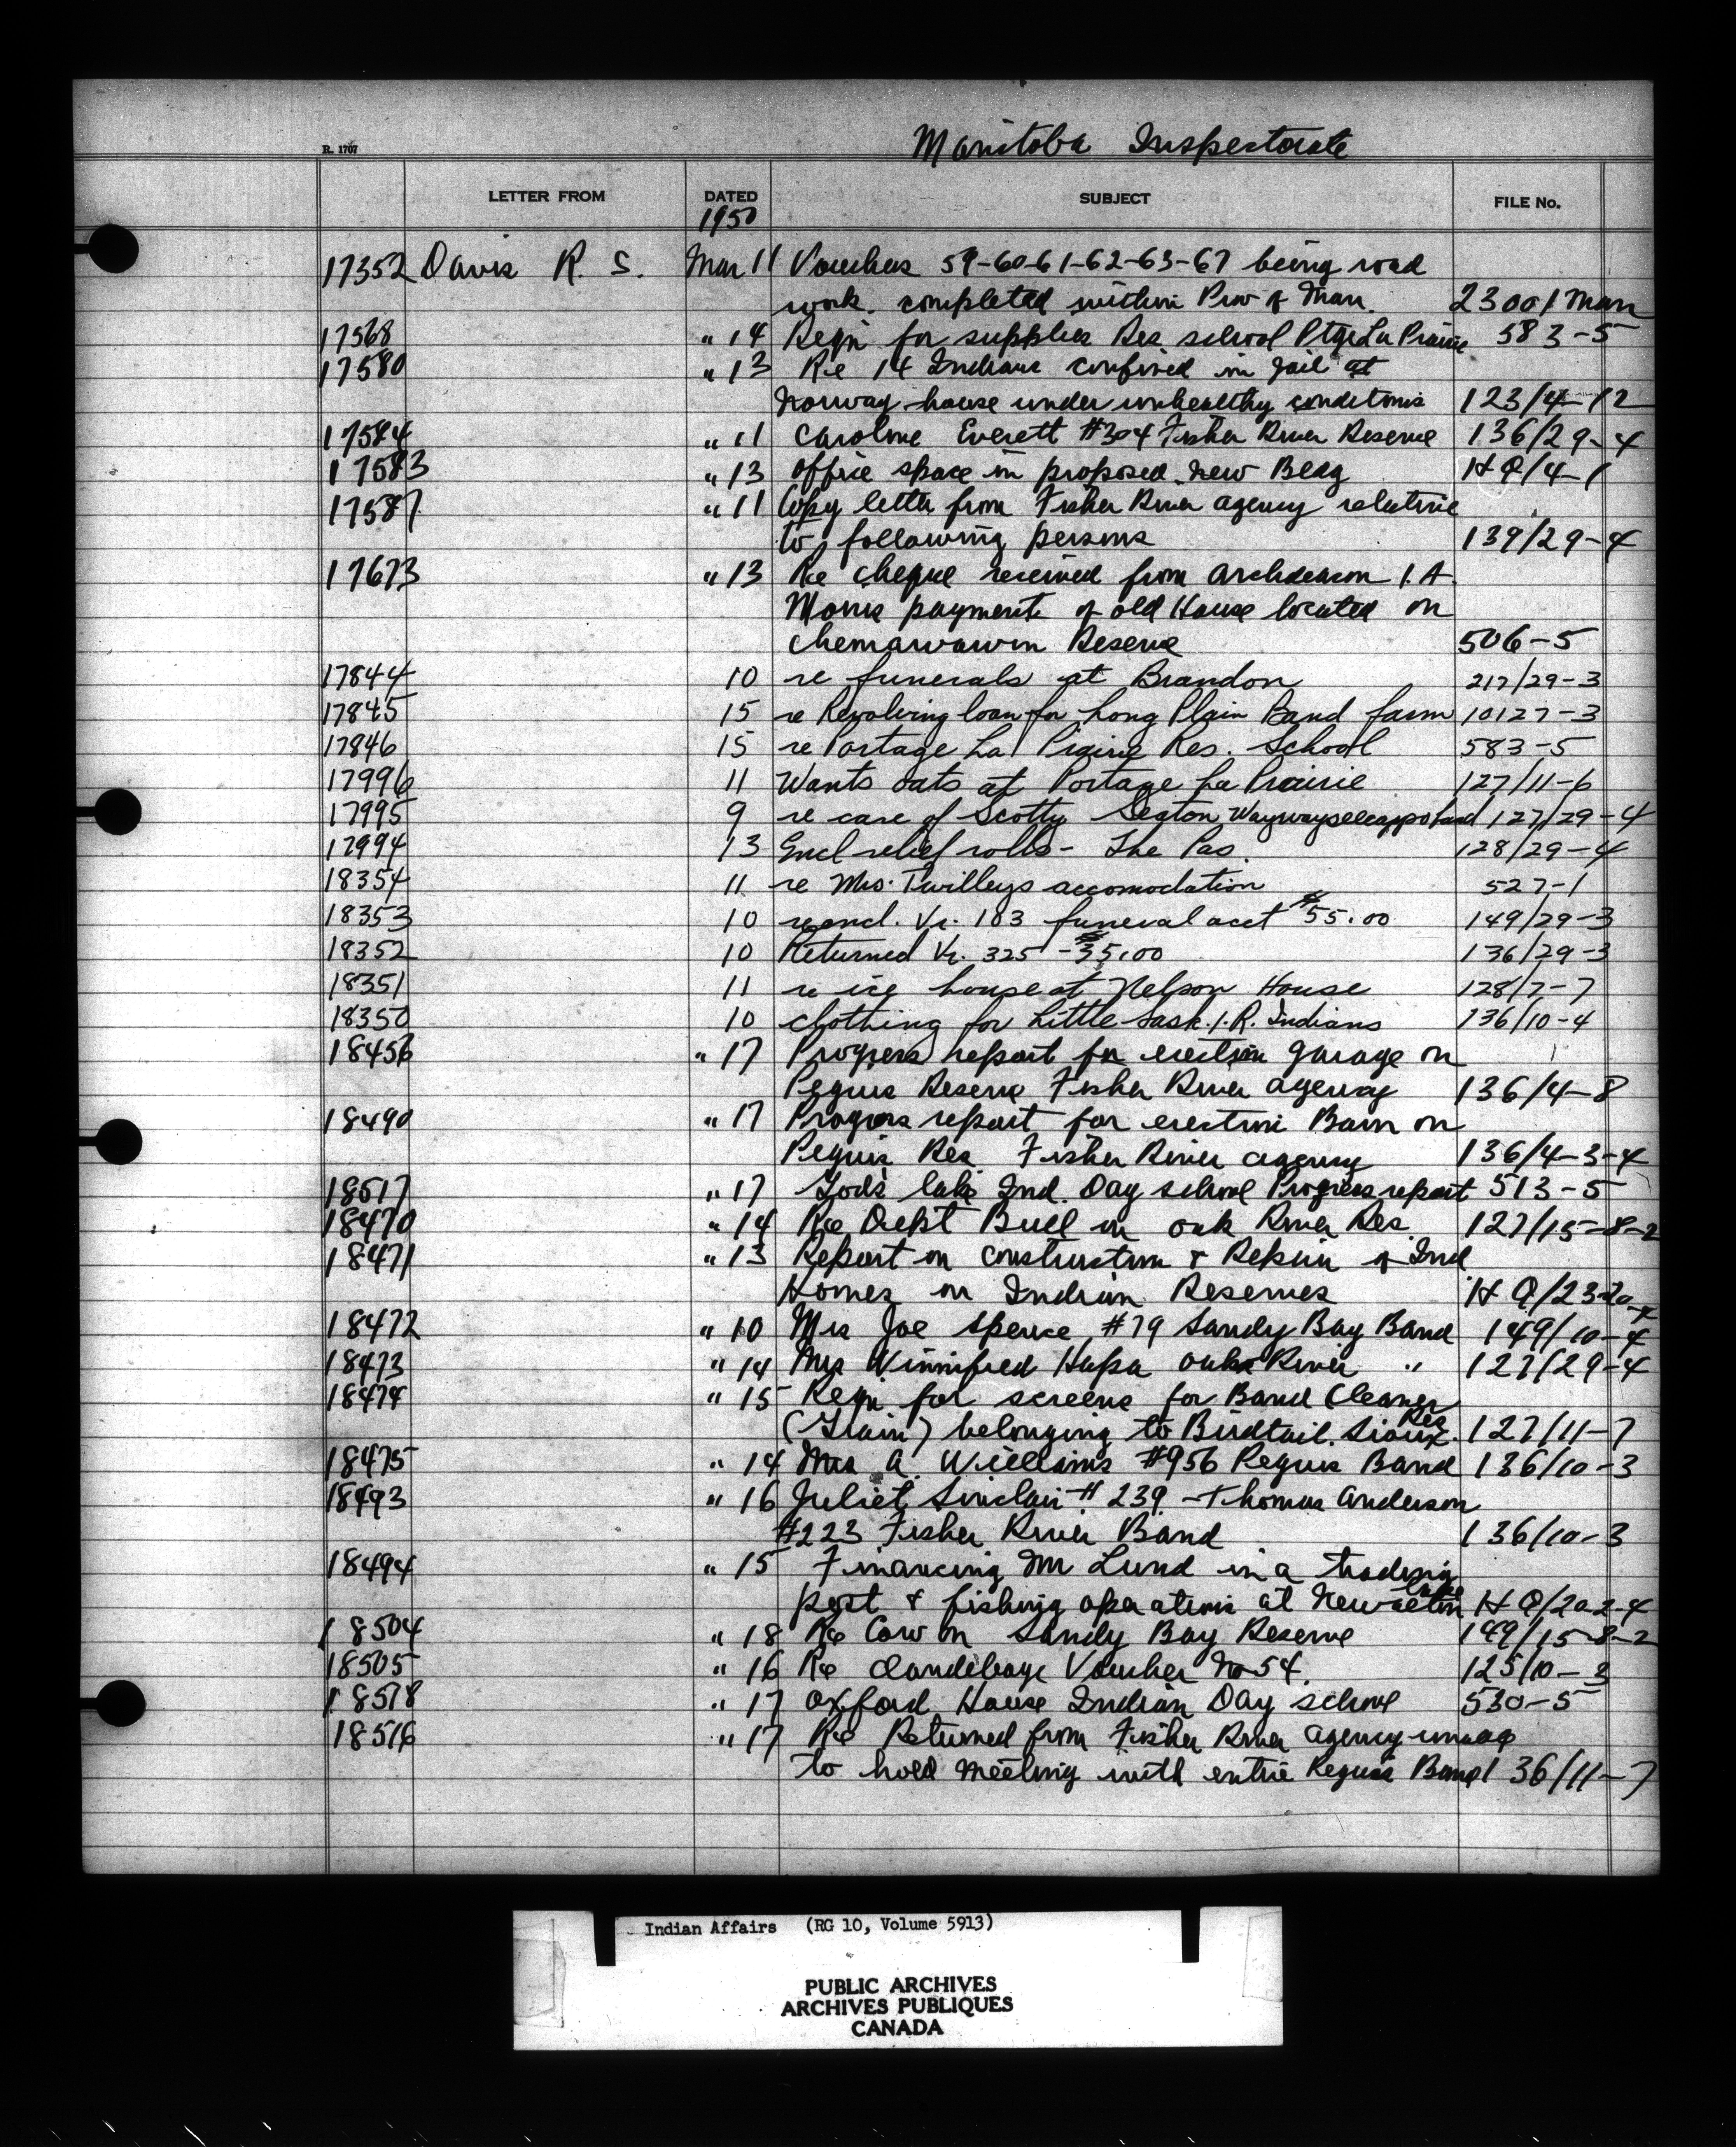 Manitoba Inspectorate
R. 1707
LETTER FROM DATED SUBJECT FILE No.
1950
17352 Davis R. S. Mar 11 Vouchers 59-60-61-62-63-67 being road
work completed within Prov of Man. 23001 Man
17568 " 14 Reqn for supplies Res school Ptge La Prairie 583-5
17580 " 13 Re 14 Indians confined in jail at
Norway house under unhealthy conditions 123/4-12
17584 " 11 Caroline Everett #304 Fisher River Reserve 136/29-4
17583 " 13 Office space in proposed New Bldg HQ/4-1
17587 " 11 Copy letter from Fisher River agency relative
to following persons 139/29-4
17673 " 13 Re cheque received from Archdeacon
payment of old House located on
Chemawawin Reserve 506-5
17844 10 re funerals at Brandon 217/29-3
17845 15 re Revolving loan for Long Plain Band farm 10127-3
17846 15 re Portage La Prairie Res. School 583-5
17996 11 Wants oats at Portage la Prairie 127/11-6
17995 9 re care of Scotty Seaton 127/29-4
17994 13 Encl relief rolls - The Pas. 128/29-4
18354 11 re Mrs. Twilleys accomodation 527-1
18353 10 re encl. Vr. 103 funeral acct $55.00 149/29-3
18352 10 Returned Vr. 325 - $35.00 136/29-3
18351 11 re ice house at Nelson House 128/7-7
18350 10 clothing for Little Sask. I.R. Indians 136/10-4
18456 " 17 Progress report for erection garage on
Peguis Reserve Fisher River agency 136/4-8
18490 " 17 Progress report for erection Barn on
Peguis Res Fisher River agency 136/4-3-4
18517 " 17 Gods lake Ind. Day school Progress report 513-5
18470 " 14 Re Dept Bull on Oak River Res. 127/15-8-2
18471 " 13 Report on construction & Repair of Ind
Homes on Indian Reserves HQ/23-20-
18472 " 10 Mrs Joe Spence #79 Sandy Bay Band 149/10-4
18473 " 14 Mrs Winnifred Hapa Oak River " 127/29-4
18474 " 15 Reqn for screens for Band Cleaner
(Grain) belonging to Birdtail Sioux Res. 127/11-7
18475 " 14 Mrs A. Williams #956 Peguis Band 136/10-3
18493 " 16 Juliet Sinclair # 239 - Thomas Anderson
#223 Fisher River Band 136/10-3
18494 " 15 Financing Mr Lund in a trading
post & fishing operations at HQ/20-2-4
18504 " 18 Re Cow on Sandy Bay Reserve 149/15-8-2
18505 " 16 Re Voucher No 54. 125/10-3
18518 " 17 Oxford House Indian Day school 530-5
18516 " 17 Re Returned from Fisher River agency
to hold meeting with entire Peguis Band 136/11-7
Indian Affairs (RG 10, Volume 5913)
PUBLIC ARCHIVES
ARCHIVES PUBLIQUES
CANADA